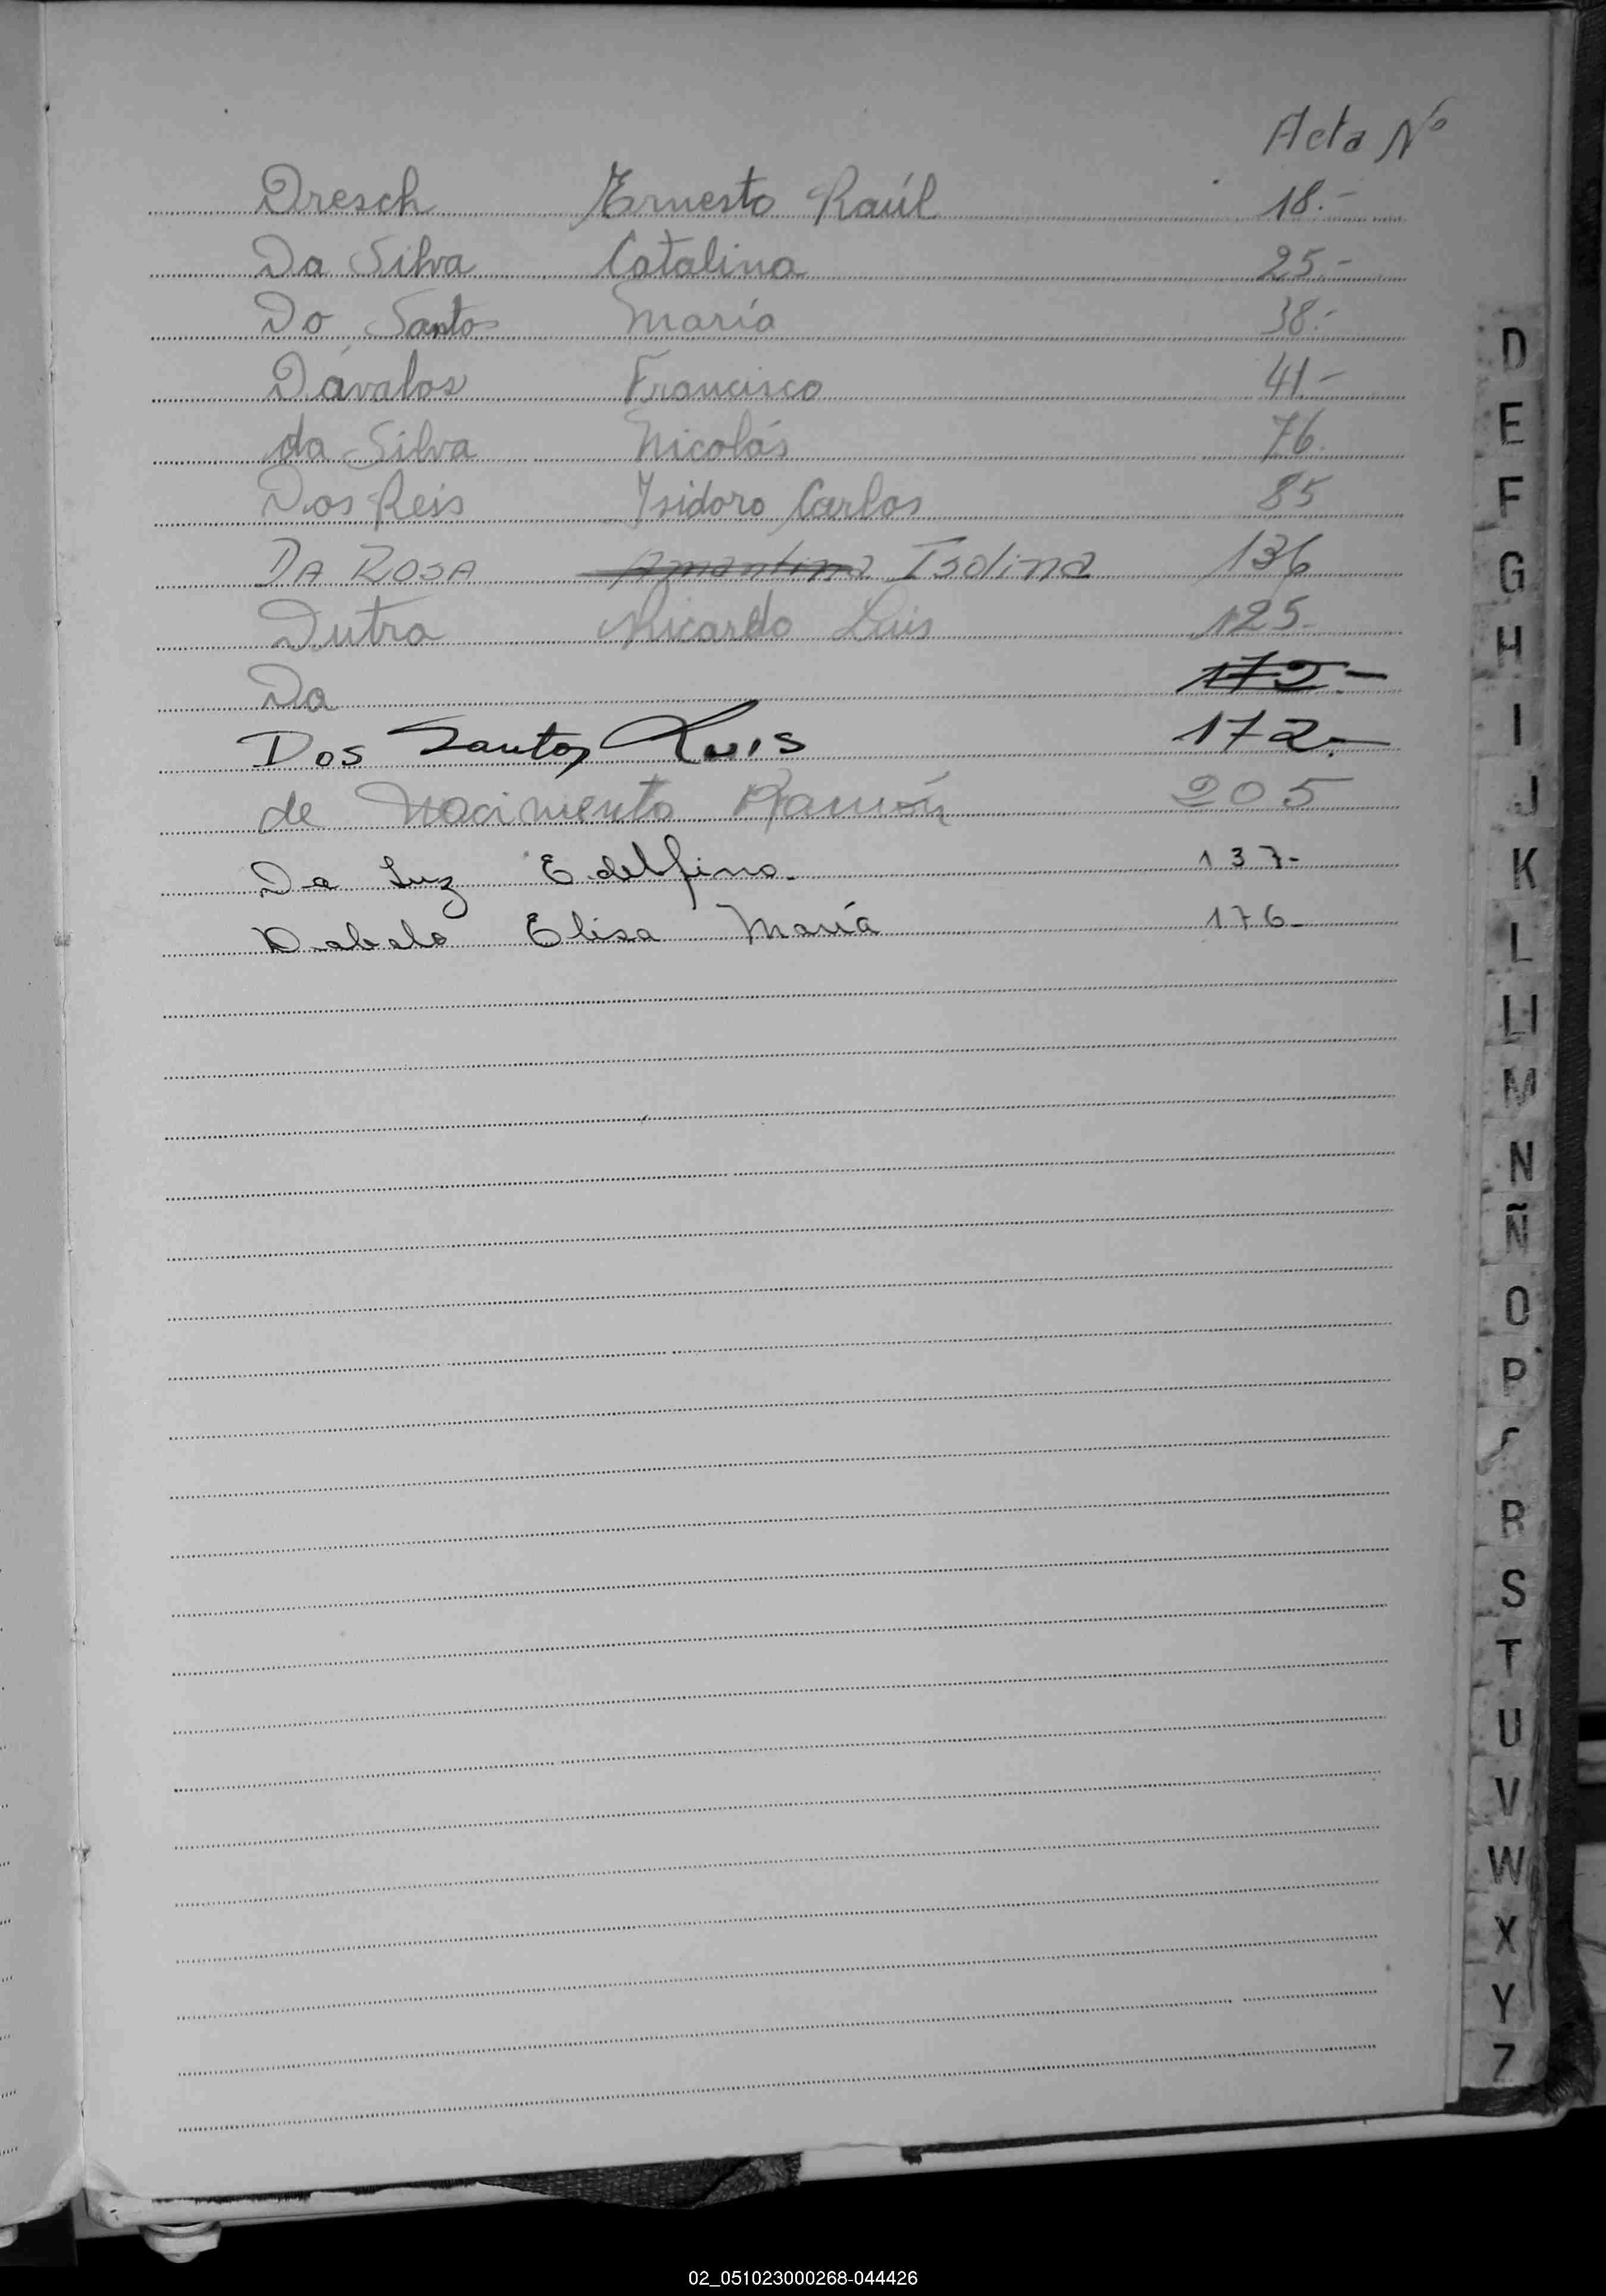 Acta Nº
Dresch Ernesto Raúl 18.-
Da Silva Catalina 25.-
Do Santos María 38.-
Dávalos Francisco 41.-
da Silva Nicolás 76.
Dos Reis Isidoro Carlos 85
DA ROSA Amantina Isolina 136
Dutra Ricardo Luis 125-
Da 172.-
Dos Santos Luis 172.-
de Nacimento Ramón 205
Da Luz Edelfina. 137-
Dabalo Elisa María 176-
D
E
F
G
H
I
J
K
L
Ll
M
N
Ñ
O
P
R
S
T
U
V
W
X
Y
Z
02_051023000268-044426